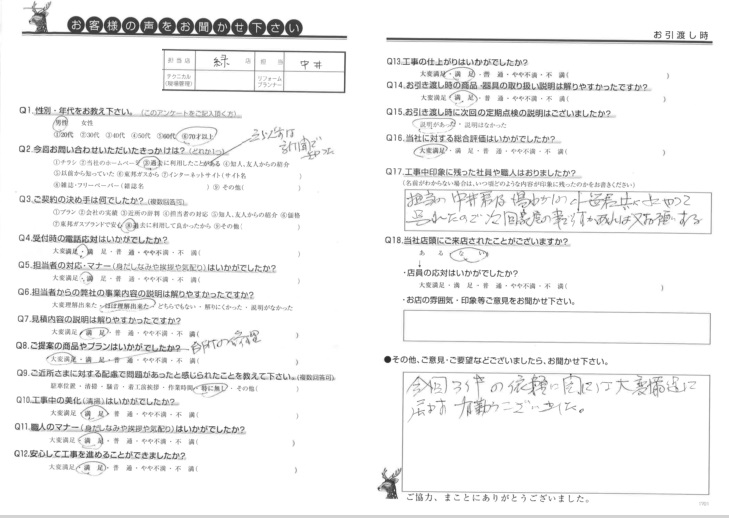 お客様の声をお聞かせ下さい
担当店 緑 店 担当 中井
テクニカル(現場管理) リフォームプランナー
Q1.性別・年代をお教え下さい。(このアンケートをご記入頂く方)
男性 女性
①20代 ②30代 ③40代 ④50代 ⑤60代 ⑥70才以上
Q2.今回お問い合わせいただいたきっかけは?(どれか1つ)
①チラシ ②当社のホームページ ③過去に利用したことがある ④知人、友人からの紹介
⑤以前から知っていた ⑥東邦ガスから ⑦インターネットサイト(サイト名 )
⑧雑誌・フリーペーパー(雑誌名 ) ⑨その他( )
Q3.ご契約の決め手は何でしたか?(複数回答可)
①プラン ②会社の実績 ③近所の評判 ④担当者の対応 ⑤知人、友人からの紹介 ⑥価格
⑦東邦ガスブランドで安心 ⑧過去に利用して良かったから ⑨その他( )
Q4.受付時の電話応対はいかがでしたか?
大変満足・満 足・普 通・やや不満・不 満( )
Q5.担当者の対応・マナー(身だしなみや挨拶や気配り)はいかがでしたか?
大変満足・満 足・普 通・やや不満・不 満( )
Q6.担当者からの弊社の事業内容の説明は解りやすかったですか?
大変理解出来た・ほぼ理解出来た・どちらでもない・解りにくかった・説明がなかった
Q7.見積内容の説明は解りやすかったですか?
大変満足・満 足・普 通・やや不満・不 満( )
Q8.ご提案の商品やプランはいかがでしたか?
大変満足・満 足・普 通・やや不満・不 満( )
Q9.ご近所さまに対する配慮で問題があったと感じられたことを教えて下さい。(複数回答可)
駐車位置・清掃・騒音・着工前挨拶・作業時間・特に無し・その他( )
Q10.工事中の美化(清掃)はいかがでしたか?
大変満足・満 足・普 通・やや不満・不 満( )
Q11.職人のマナー(身だしなみや挨拶や気配り)はいかがでしたか?
大変満足・満 足・普 通・やや不満・不 満( )
Q12.安心して工事を進めることができましたか?
大変満足・満 足・普 通・やや不満・不 満( )
お引渡し時
Q13.工事の仕上がりはいかがでしたか?
大変満足・満 足・普 通・やや不満・不 満( )
Q14.お引き渡し時の商品・器具の取り扱い説明は解りやすかったですか?
大変満足・満 足・普 通・やや不満・不 満( )
Q15.お引き渡し時に次回の定期点検の説明はございましたか?
説明があった・説明はなかった
Q16.当社に対する総合評価はいかがでしたか?
大変満足・満 足・普 通・やや不満・不 満( )
Q17.工事中印象に残った社員や職人はおりましたか?
(名前がわからない場合は、いつ頃どのような内容が印象に残ったのかをお書きください)
担当の中井君は
Q18.当社店頭にご来店されたことがございますか?
ある ない
・店員の応対はいかがでしたか?
大変満足・満 足・普 通・やや不満・不 満( )
・お店の雰囲気・印象等ご意見をお聞かせ下さい。
●その他、ご意見・ご要望などございましたら、お聞かせ下さい。
今回 の依頼に関しては大変
有難うございました。
ご協力、まことにありがとうございました。